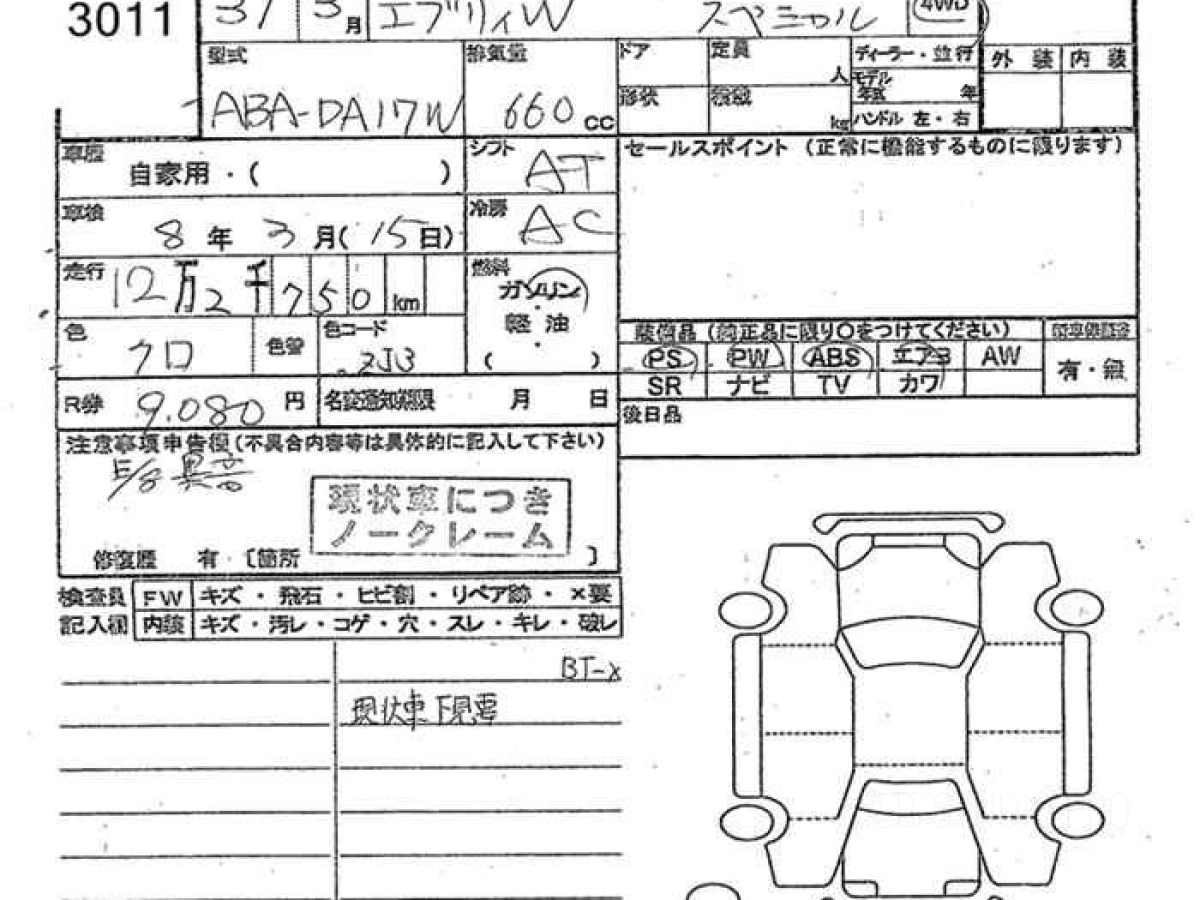 3011
31 3月 エブリィW スペシャル 4WD
型式 排気量 ドア 定員 ディーラー・並行 外装 内装
人 モデル年式 年
ABA-DA17W 660cc 形状 積載 kg ハンドル 左・右
車歴 シフト セールスポイント (正常に機能するものに限ります)
自家用・( ) AT
車検 冷房
8年 3月(15日) AC
走行 燃料
12万2千750km ガソリン
・
軽油
・
( )
色 色替 色コード
クロ ZJ3
装備品 (純正品に限り○をつけてください)
PS PW ABS エアB AW 有・無
SR ナビ TV カワ
R券 9.080円 名変通知期限 月 日
後日品
注意事項申告欄(不具合内容等は具体的に記入して下さい)
E/G異音
現状車につき
ノークレーム
修復歴 有・〔箇所 〕
検査員 FW キズ・飛石・ヒビ割・リペア跡・×要
記入欄 内装 キズ・汚レ・コゲ・穴・スレ・キレ・破レ
BT-x
現状車下見要